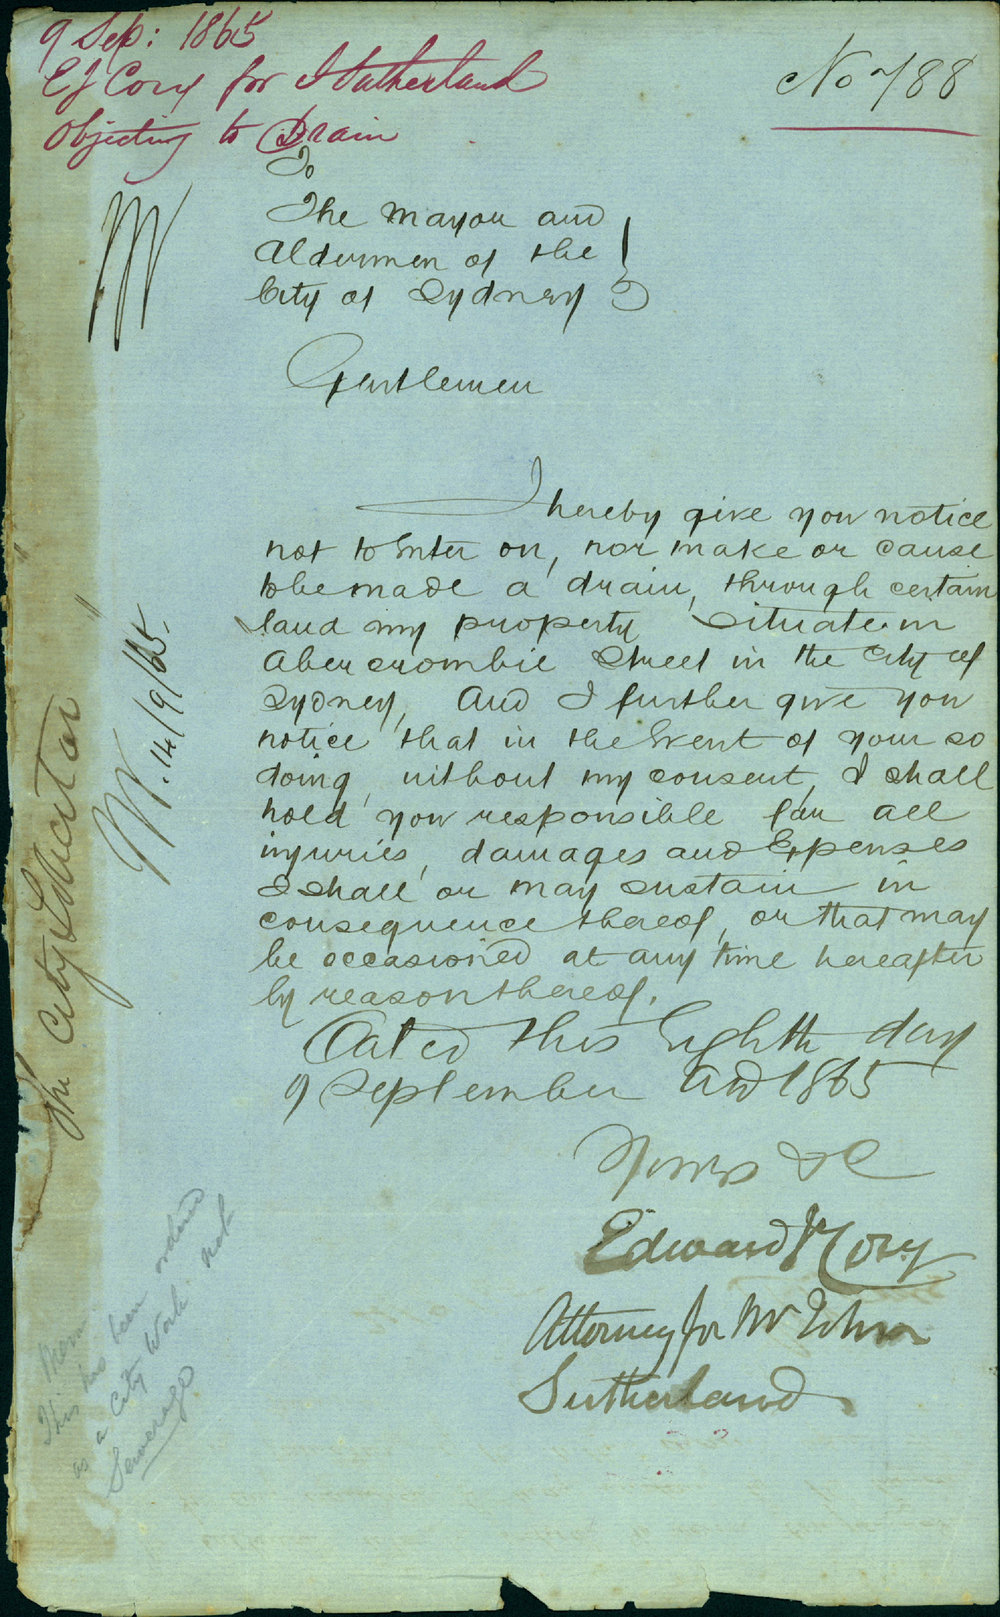 9 Sep: 1865
E J Cory for J Sutherland
Objecting to Drain
No 788
To
The Mayor and
Aldermen of the
City of Sydney
Gentlemen
I hereby give you notice
not to Enter on, nor make or cause
to be made a drain, through certain
land my property situate in
Abercrombie Street in the City of
Sydney, And I further give you
notice that in the Event of your so
doing, without my consent, I shall
hold you responsible for all
injuries, damages and Expenses
I shall or may sustain in
consequence thereof, or that may
be occasioned at any time hereafter
by reason thereof.
Dated this Eighth day
of September AD 1865
Yours &c
Edward J Cory
Attorney for Mr John
Sutherland
The City Solicitor
14/9/65.
Mem
This has been ordered
as a City Work not
Sewerage